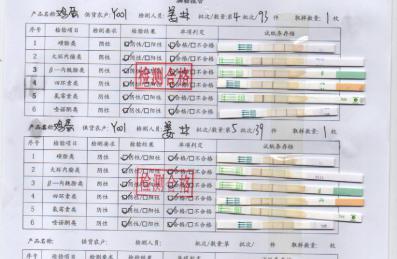 产品名称: 鸡蛋 供货农户: Y001 检测人员: 批次/数量: 84 次/93 件 取样数量: 1 枚
序号 检验项目 检测要求 检验结果 单项判定 试纸条存档
1 磺胺类 阴性 ☑阴性/□阳性 ☑合格/□不合格
2 大环内酯类 阴性 ☑阴性/□阳性 ☑合格/□不合格
3 β-内酰胺类 阴性 ☑阴性/□阳性 ☑合格/□不合格
4 四环素类 阴性 ☑阴性/□阳性 ☑合格/□不合格
5 氟霉素类 阴性 ☑阴性/□阳性 ☑合格/□不合格
6 喹诺酮类 阴性 ☑阴性/□阳性 ☑合格/□不合格
检测合格
产品名称: 鸡蛋 供货农户: Y001 检测人员: 批次/数量: 85 次/39 件 取样数量: 1 枚
序号 检验项目 检测要求 检验结果 单项判定 试纸条存档
1 磺胺类 阴性 ☑阴性/□阳性 ☑合格/□不合格
2 大环内酯类 阴性 ☑阴性/□阳性 ☑合格/□不合格
3 β-内酰胺类 阴性 ☑阴性/□阳性 ☑合格/□不合格
4 四环素类 阴性 ☑阴性/□阳性 ☑合格/□不合格
5 氟霉素类 阴性 ☑阴性/□阳性 ☑合格/□不合格
6 喹诺酮类 阴性 ☑阴性/□阳性 ☑合格/□不合格
检测合格
产品名称: 供货农户: 检测人员: 批次/数量: 第 次/ 件 取样数量: 枚
序号 检验项目 检测要求 检验结果 单项判定 试纸条存档